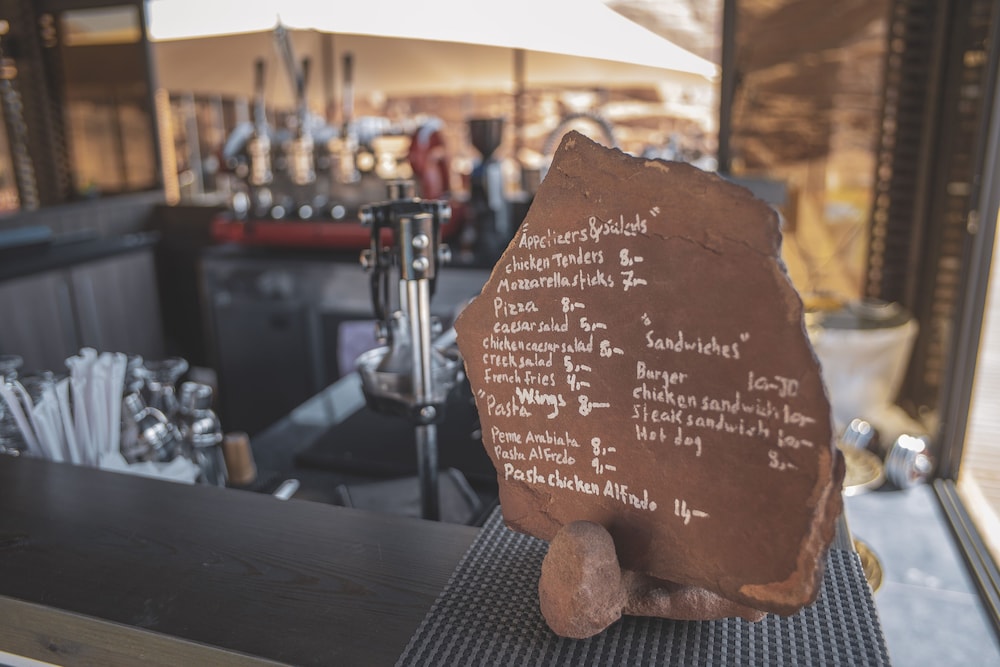 "Appetizers & salads"
chicken Tenders 8,-
Mozzarella sticks 7,-
Pizza 8,-
caesar salad 5,-
chicken caesar salad 8,-
creek salad 5,-
french fries 4,-
Wings 8,-
"Pasta"
Penne Arabiata 8,-
Pasta Alfredo 9,-
Pasta chicken Alfredo 14,-
"Sandwiches"
Burger
chicken sandwich 10,-
Steak sandwich 10,-
Hot dog 8,-